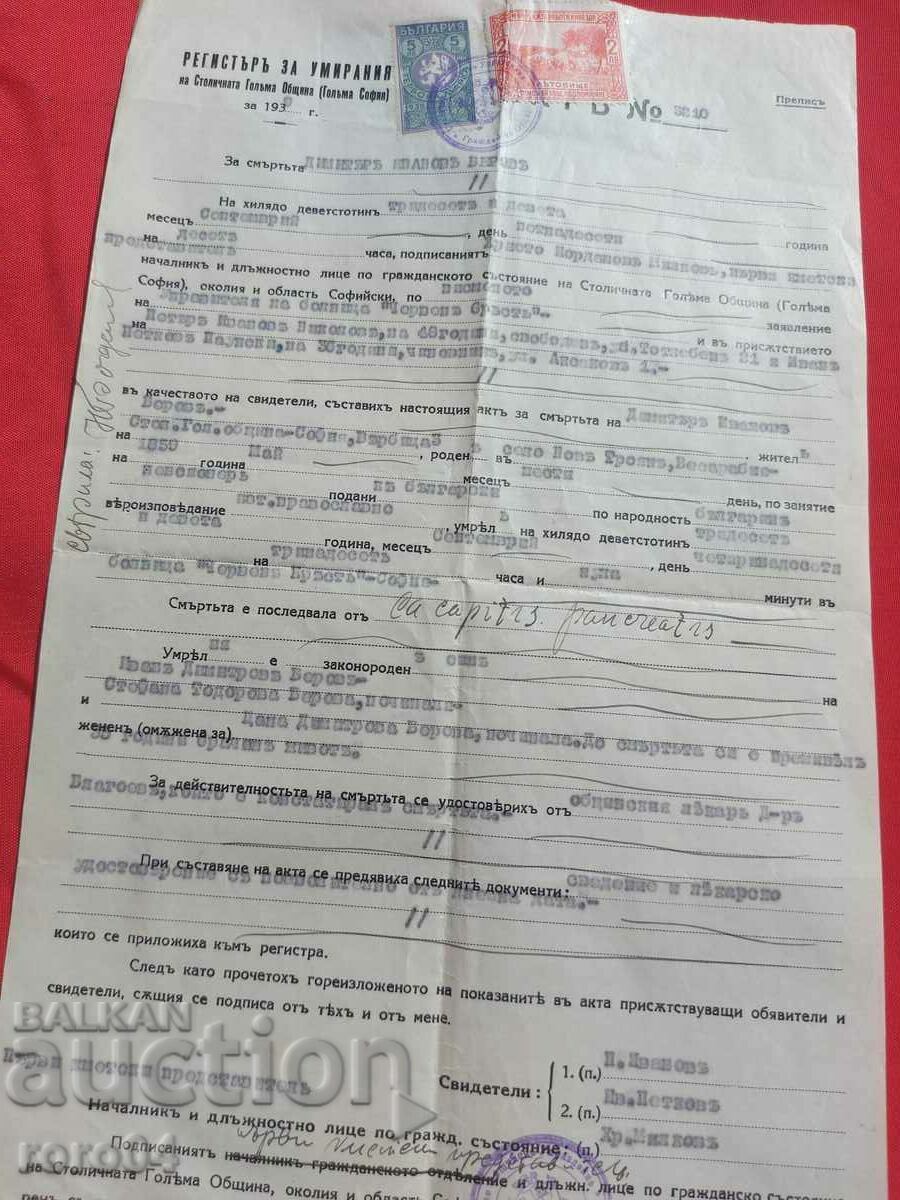 РЕГИСТЪРЪ ЗА УМИРАНИЯ
на Столичната Голѣма Община (Голѣма София)
за 193 г.
БЪЛГАРИЯ
5 5
2
№ 3210
Преписъ
За смъртьта ДИМИТЪРЪ ИВАНОВЪ БЕРОВЪ
На хилядо деветстотинъ тридесетъ и девета година
месецъ Септемврий, день петнадесети
на десетъ часа, подписаниятъ Христо Йордановъ Миковъ, първи кметски
представитель
началникъ и длъжностно лице по гражданското състояние на Столичната Голѣма Община (Голѣма
София), околия и область Софийски, по писменото заявление
на Управителя на болница "Червенъ Кръстъ"- и въ присѫтствието
на Петъръ Ивановъ Николовъ, на 48 години, свободенъ, ул. Тотлебенъ 21 и Иванъ
Петковъ, на 36 години, чиновникъ, ул. Аксаковъ 1.-
въ качеството на свидетели, съставихъ настоящия актъ за смъртьта на Димитъръ Ивановъ
Беровъ.-
Стол. Гол. община-София, Върбица 3, жителъ
на, роденъ въ село Новъ Троянъ, Бесарабия-
на 1859 година Май месецъ шести день, по занятие
пенсионеръ подани къ български по народность българинъ
вѣроизповѣдание изт. православно, умрѣлъ на хилядо деветстотинъ тридесетъ
и девета година, месецъ Септемврий, день четиринадесети
на тринадесетъ часа и нула минути въ
болница "Червенъ Кръстъ"-София-
Смъртьта е последвала отъ Ca capitis pancreatis
Умрѣлъ е законороденъ синъ на
Иванъ Димитровъ Беровъ-
и Стефана Тодорова Берова, починали-
жененъ (омѫжена за) Цана Димитрова Берова, починала. До смъртьта си е преживѣлъ
години браченъ животъ.
За действителностьта на смъртьта се удостовѣрихъ отъ общинския лѣкарь Д-ръ
Благоевъ, който е констатиралъ смъртьта.-
При съставяне на акта се предявиха следнитѣ документи: сведение и лѣкарско
удостоверение
които се приложиха къмъ регистра.
Следъ като прочетохъ гореизложеното на показанитѣ въ акта присѫтствуващи обявители и
свидетели, сѫщия се подписа отъ тѣхъ и отъ мене.
Първи кметски представитель
Свидетели:
1. (п.) П. Ивановъ
2. (п.) Ив. Петковъ
Началникъ и длъжностно лице по гражд. състояние: (п.) Хр. Миковъ
Първи кметски представител
Подписаниятъ началникъ гражданското отдѣление и длъжн. лице по гражданско състояние
на Столичната Голѣма Община, околия и область
BALKAN
auction
roro